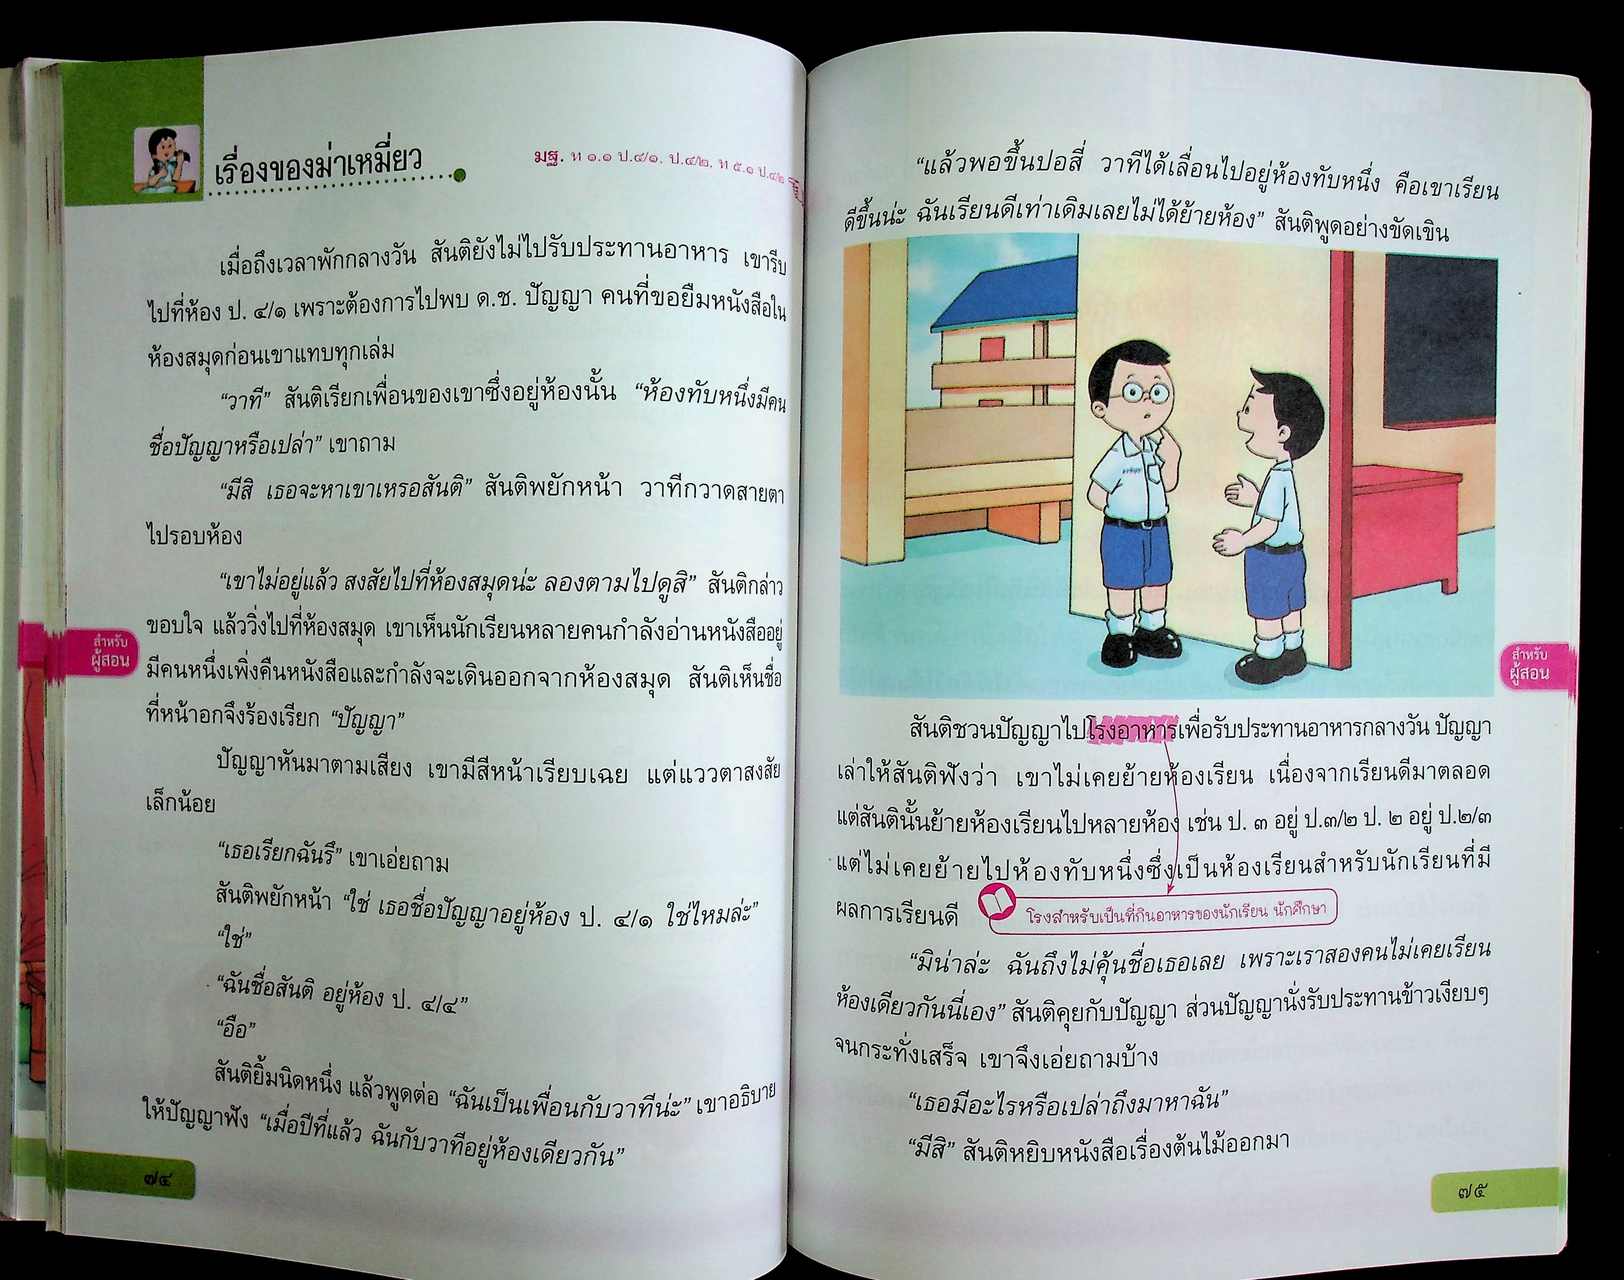 เรื่องของม่าเหมี่ยว
มฐ. ท ๑.๑ ป.๔/๑. ป.๔/๒. ท ๕.๑ ป.๔/๒
เมื่อถึงเวลาพักกลางวัน สันติยังไม่ไปรับประทานอาหาร เขารีบ
ไปที่ห้อง ป. ๔/๑ เพราะต้องการไปพบ ด.ช. ปัญญา คนที่ขอยืมหนังสือใน
ห้องสมุดก่อนเขาแทบทุกเล่ม
“วาที” สันติเรียกเพื่อนของเขาซึ่งอยู่ห้องนั้น “ห้องทับหนึ่งมีคน
ชื่อปัญญาหรือเปล่า” เขาถาม
“มีสิ เธอจะหาเขาเหรอสันติ” สันติพยักหน้า วาทีกวาดสายตา
ไปรอบห้อง
“เขาไม่อยู่แล้ว สงสัยไปที่ห้องสมุดน่ะ ลองตามไปดูสิ” สันติกล่าว
ขอบใจ แล้ววิ่งไปที่ห้องสมุด เขาเห็นนักเรียนหลายคนกำลังอ่านหนังสืออยู่
มีคนหนึ่งเพิ่งคืนหนังสือและกำลังจะเดินออกจากห้องสมุด สันติเห็นชื่อ
ที่หน้าอกจึงร้องเรียก “ปัญญา”
ปัญญาหันมาตามเสียง เขามีสีหน้าเรียบเฉย แต่แววตาสงสัย
เล็กน้อย
“เธอเรียกฉันรึ” เขาเอ่ยถาม
สันติพยักหน้า “ใช่ เธอชื่อปัญญาอยู่ห้อง ป. ๔/๑ ใช่ไหมล่ะ”
“ใช่”
“ฉันชื่อสันติ อยู่ห้อง ป. ๔/๔”
“อือ”
สันติยิ้มนิดหนึ่ง แล้วพูดต่อ “ฉันเป็นเพื่อนกับวาทีน่ะ” เขาอธิบาย
ให้ปัญญาฟัง “เมื่อปีที่แล้ว ฉันกับวาทีอยู่ห้องเดียวกัน”
สำหรับ
ผู้สอน
๗๔
“แล้วพอขึ้นปอสี่ วาทีได้เลื่อนไปอยู่ห้องทับหนึ่ง คือเขาเรียน
ดีขึ้นน่ะ ฉันเรียนดีเท่าเดิมเลยไม่ได้ย้ายห้อง” สันติพูดอย่างขัดเขิน
สันติชวนปัญญาไปโรงอาหารเพื่อรับประทานอาหารกลางวัน ปัญญา
เล่าให้สันติฟังว่า เขาไม่เคยย้ายห้องเรียน เนื่องจากเรียนดีมาตลอด
แต่สันตินั้นย้ายห้องเรียนไปหลายห้อง เช่น ป. ๓ อยู่ ป.๓/๒ ป. ๒ อยู่ ป.๒/๓
แต่ไม่เคยย้ายไปห้องทับหนึ่งซึ่งเป็นห้องเรียนสำหรับนักเรียนที่มี
ผลการเรียนดี
โรงสำหรับเป็นที่กินอาหารของนักเรียน นักศึกษา
“มิน่าล่ะ ฉันถึงไม่คุ้นชื่อเธอเลย เพราะเราสองคนไม่เคยเรียน
ห้องเดียวกันนี่เอง” สันติคุยกับปัญญา ส่วนปัญญานั่งรับประทานข้าวเงียบๆ
จนกระทั่งเสร็จ เขาจึงเอ่ยถามบ้าง
“เธอมีอะไรหรือเปล่าถึงมาหาฉัน”
“มีสิ” สันติหยิบหนังสือเรื่องต้นไม้ออกมา
สำหรับ
ผู้สอน
๗๕